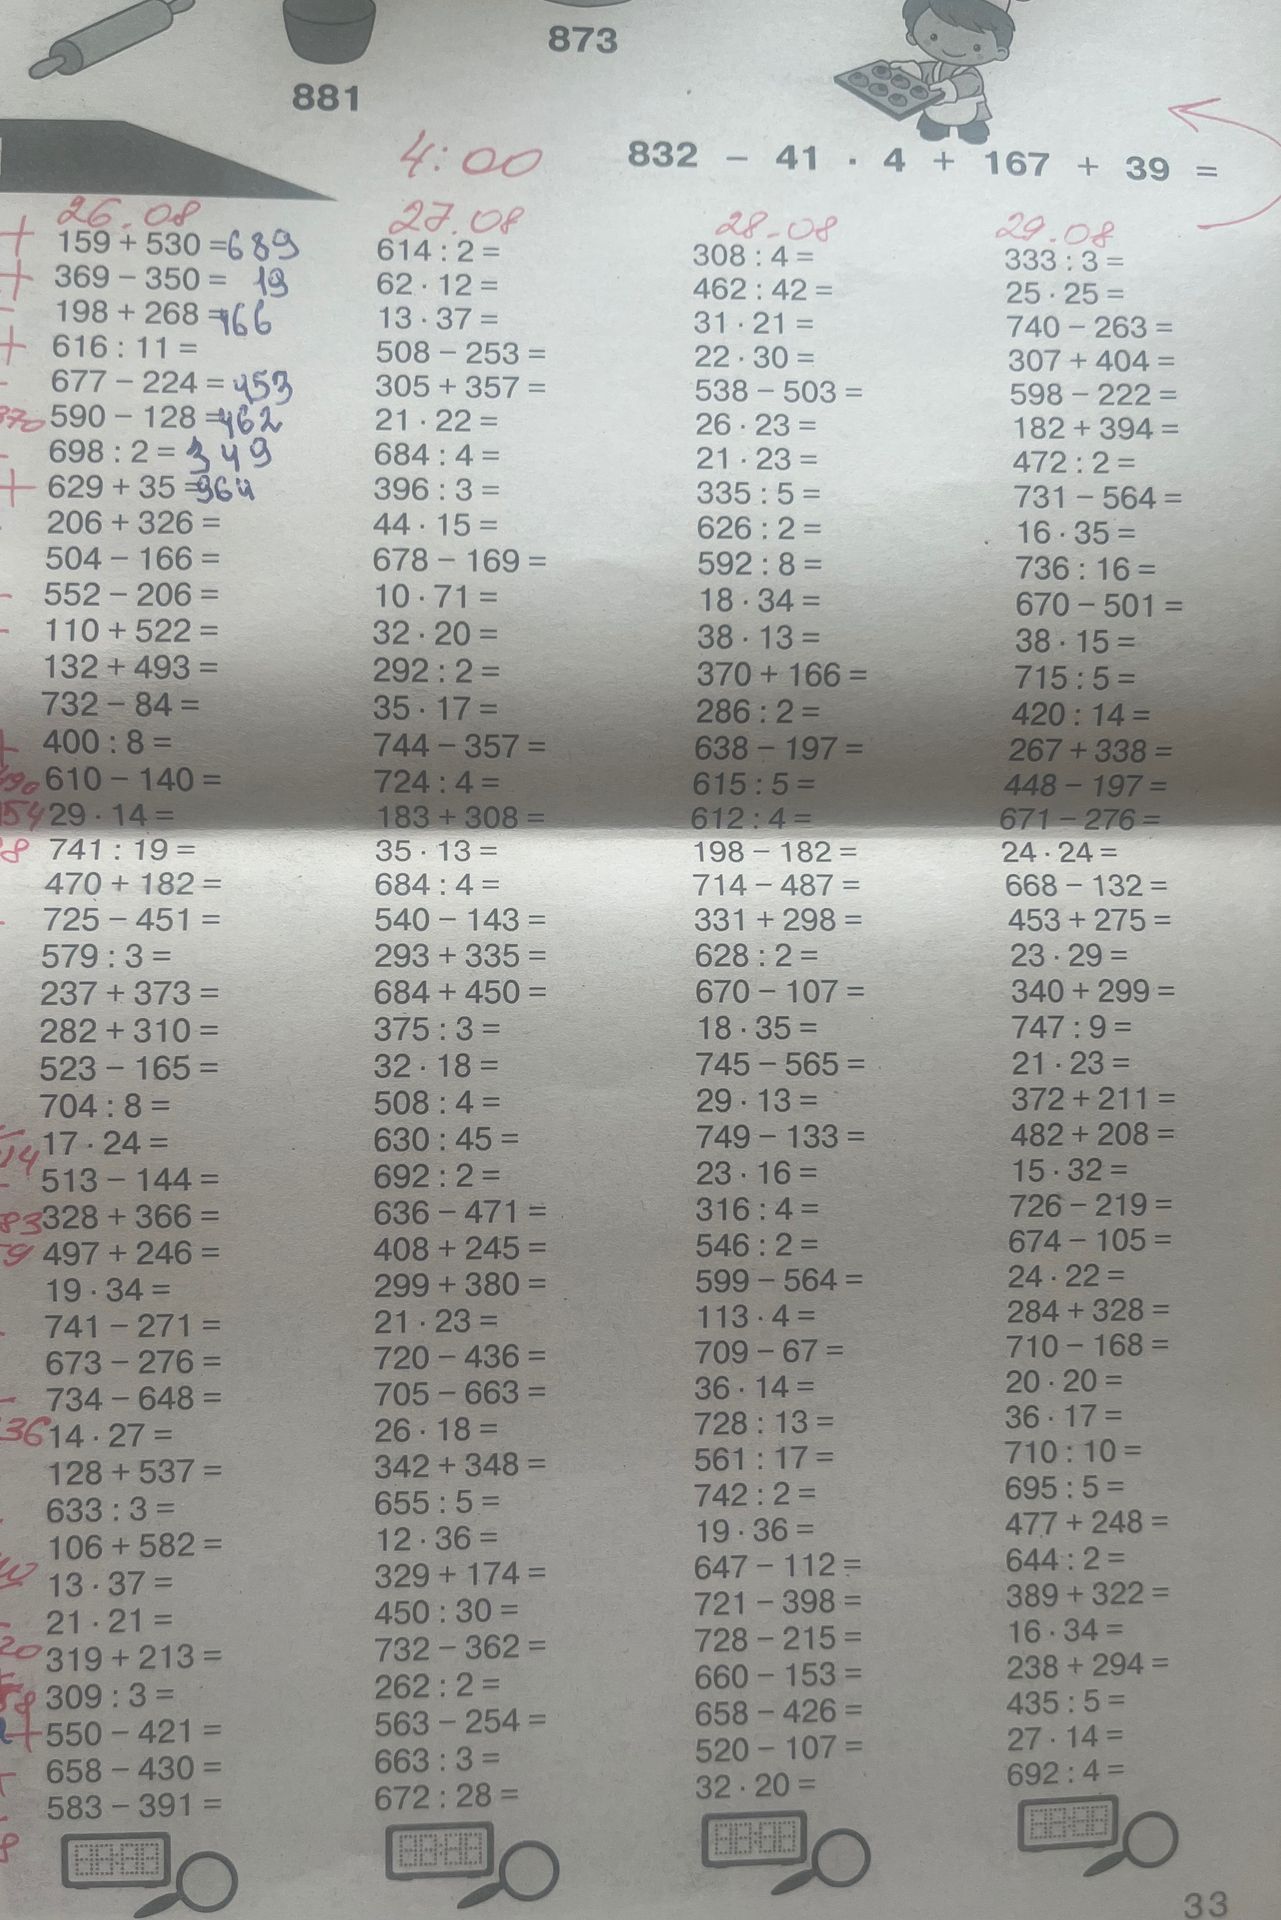 873
881
4:00
832 - 41 · 4 + 167 + 39 =
26.08
159 + 530 = 689
369 - 350 = 19
198 + 268 = 466
616 : 11 =
677 - 224 = 453
590 - 128 = 462
698 : 2 = 349
629 + 35 = 964
206 + 326 =
504 - 166 =
552 - 206 =
110 + 522 =
132 + 493 =
732 - 84 =
400 : 8 =
610 - 140 =
29 · 14 =
741 : 19 =
470 + 182 =
725 - 451 =
579 : 3 =
237 + 373 =
282 + 310 =
523 - 165 =
704 : 8 =
17 · 24 =
513 - 144 =
328 + 366 =
497 + 246 =
19 · 34 =
741 - 271 =
673 - 276 =
734 - 648 =
14 · 27 =
128 + 537 =
633 : 3 =
106 + 582 =
13 · 37 =
21 · 21 =
319 + 213 =
309 : 3 =
550 - 421 =
658 - 430 =
583 - 391 =
27.08
614 : 2 =
62 · 12 =
13 · 37 =
508 - 253 =
305 + 357 =
21 · 22 =
684 : 4 =
396 : 3 =
44 · 15 =
678 - 169 =
10 · 71 =
32 · 20 =
292 : 2 =
35 · 17 =
744 - 357 =
724 : 4 =
183 + 308 =
35 · 13 =
684 : 4 =
540 - 143 =
293 + 335 =
684 + 450 =
375 : 3 =
32 · 18 =
508 : 4 =
630 : 45 =
692 : 2 =
636 - 471 =
408 + 245 =
299 + 380 =
21 · 23 =
720 - 436 =
705 - 663 =
26 · 18 =
342 + 348 =
655 : 5 =
12 · 36 =
329 + 174 =
450 : 30 =
732 - 362 =
262 : 2 =
563 - 254 =
663 : 3 =
672 : 28 =
28.08
308 : 4 =
462 : 42 =
31 · 21 =
22 · 30 =
538 - 503 =
26 · 23 =
21 · 23 =
335 : 5 =
626 : 2 =
592 : 8 =
18 · 34 =
38 · 13 =
370 + 166 =
286 : 2 =
638 - 197 =
615 : 5 =
612 : 4 =
198 - 182 =
714 - 487 =
331 + 298 =
628 : 2 =
670 - 107 =
18 · 35 =
745 - 565 =
29 · 13 =
749 - 133 =
23 · 16 =
316 : 4 =
546 : 2 =
599 - 564 =
113 · 4 =
709 - 67 =
36 · 14 =
728 : 13 =
561 : 17 =
742 : 2 =
19 · 36 =
647 - 112 =
721 - 398 =
728 - 215 =
660 - 153 =
658 - 426 =
520 - 107 =
32 · 20 =
29.08
333 : 3 =
25 · 25 =
740 - 263 =
307 + 404 =
598 - 222 =
182 + 394 =
472 : 2 =
731 - 564 =
16 · 35 =
736 : 16 =
670 - 501 =
38 · 15 =
715 : 5 =
420 : 14 =
267 + 338 =
448 - 197 =
671 - 276 =
24 · 24 =
668 - 132 =
453 + 275 =
23 · 29 =
340 + 299 =
747 : 9 =
21 · 23 =
372 + 211 =
482 + 208 =
15 · 32 =
726 - 219 =
674 - 105 =
24 · 22 =
284 + 328 =
710 - 168 =
20 · 20 =
36 · 17 =
710 : 10 =
695 : 5 =
477 + 248 =
644 : 2 =
389 + 322 =
16 · 34 =
238 + 294 =
435 : 5 =
27 · 14 =
692 : 4 =
33